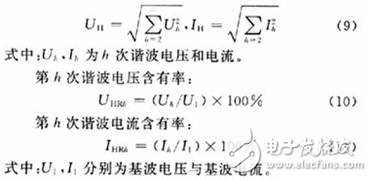 U_H = √(∑_{h=2} U_h²), I_H = √(∑_{h=2} I_h²) (9)
式中:U_h、I_h 为 h 次谐波电压和电流。
第 h 次谐波电压含有率:
U_{HRh} = (U_h/U_1)×100% (10)
第 h 次谐波电流含有率:
I_{HRh} = (I_h/I_1)×1
式中:U_1、I_1 分别为基波电压与基波电流。
电子发烧友